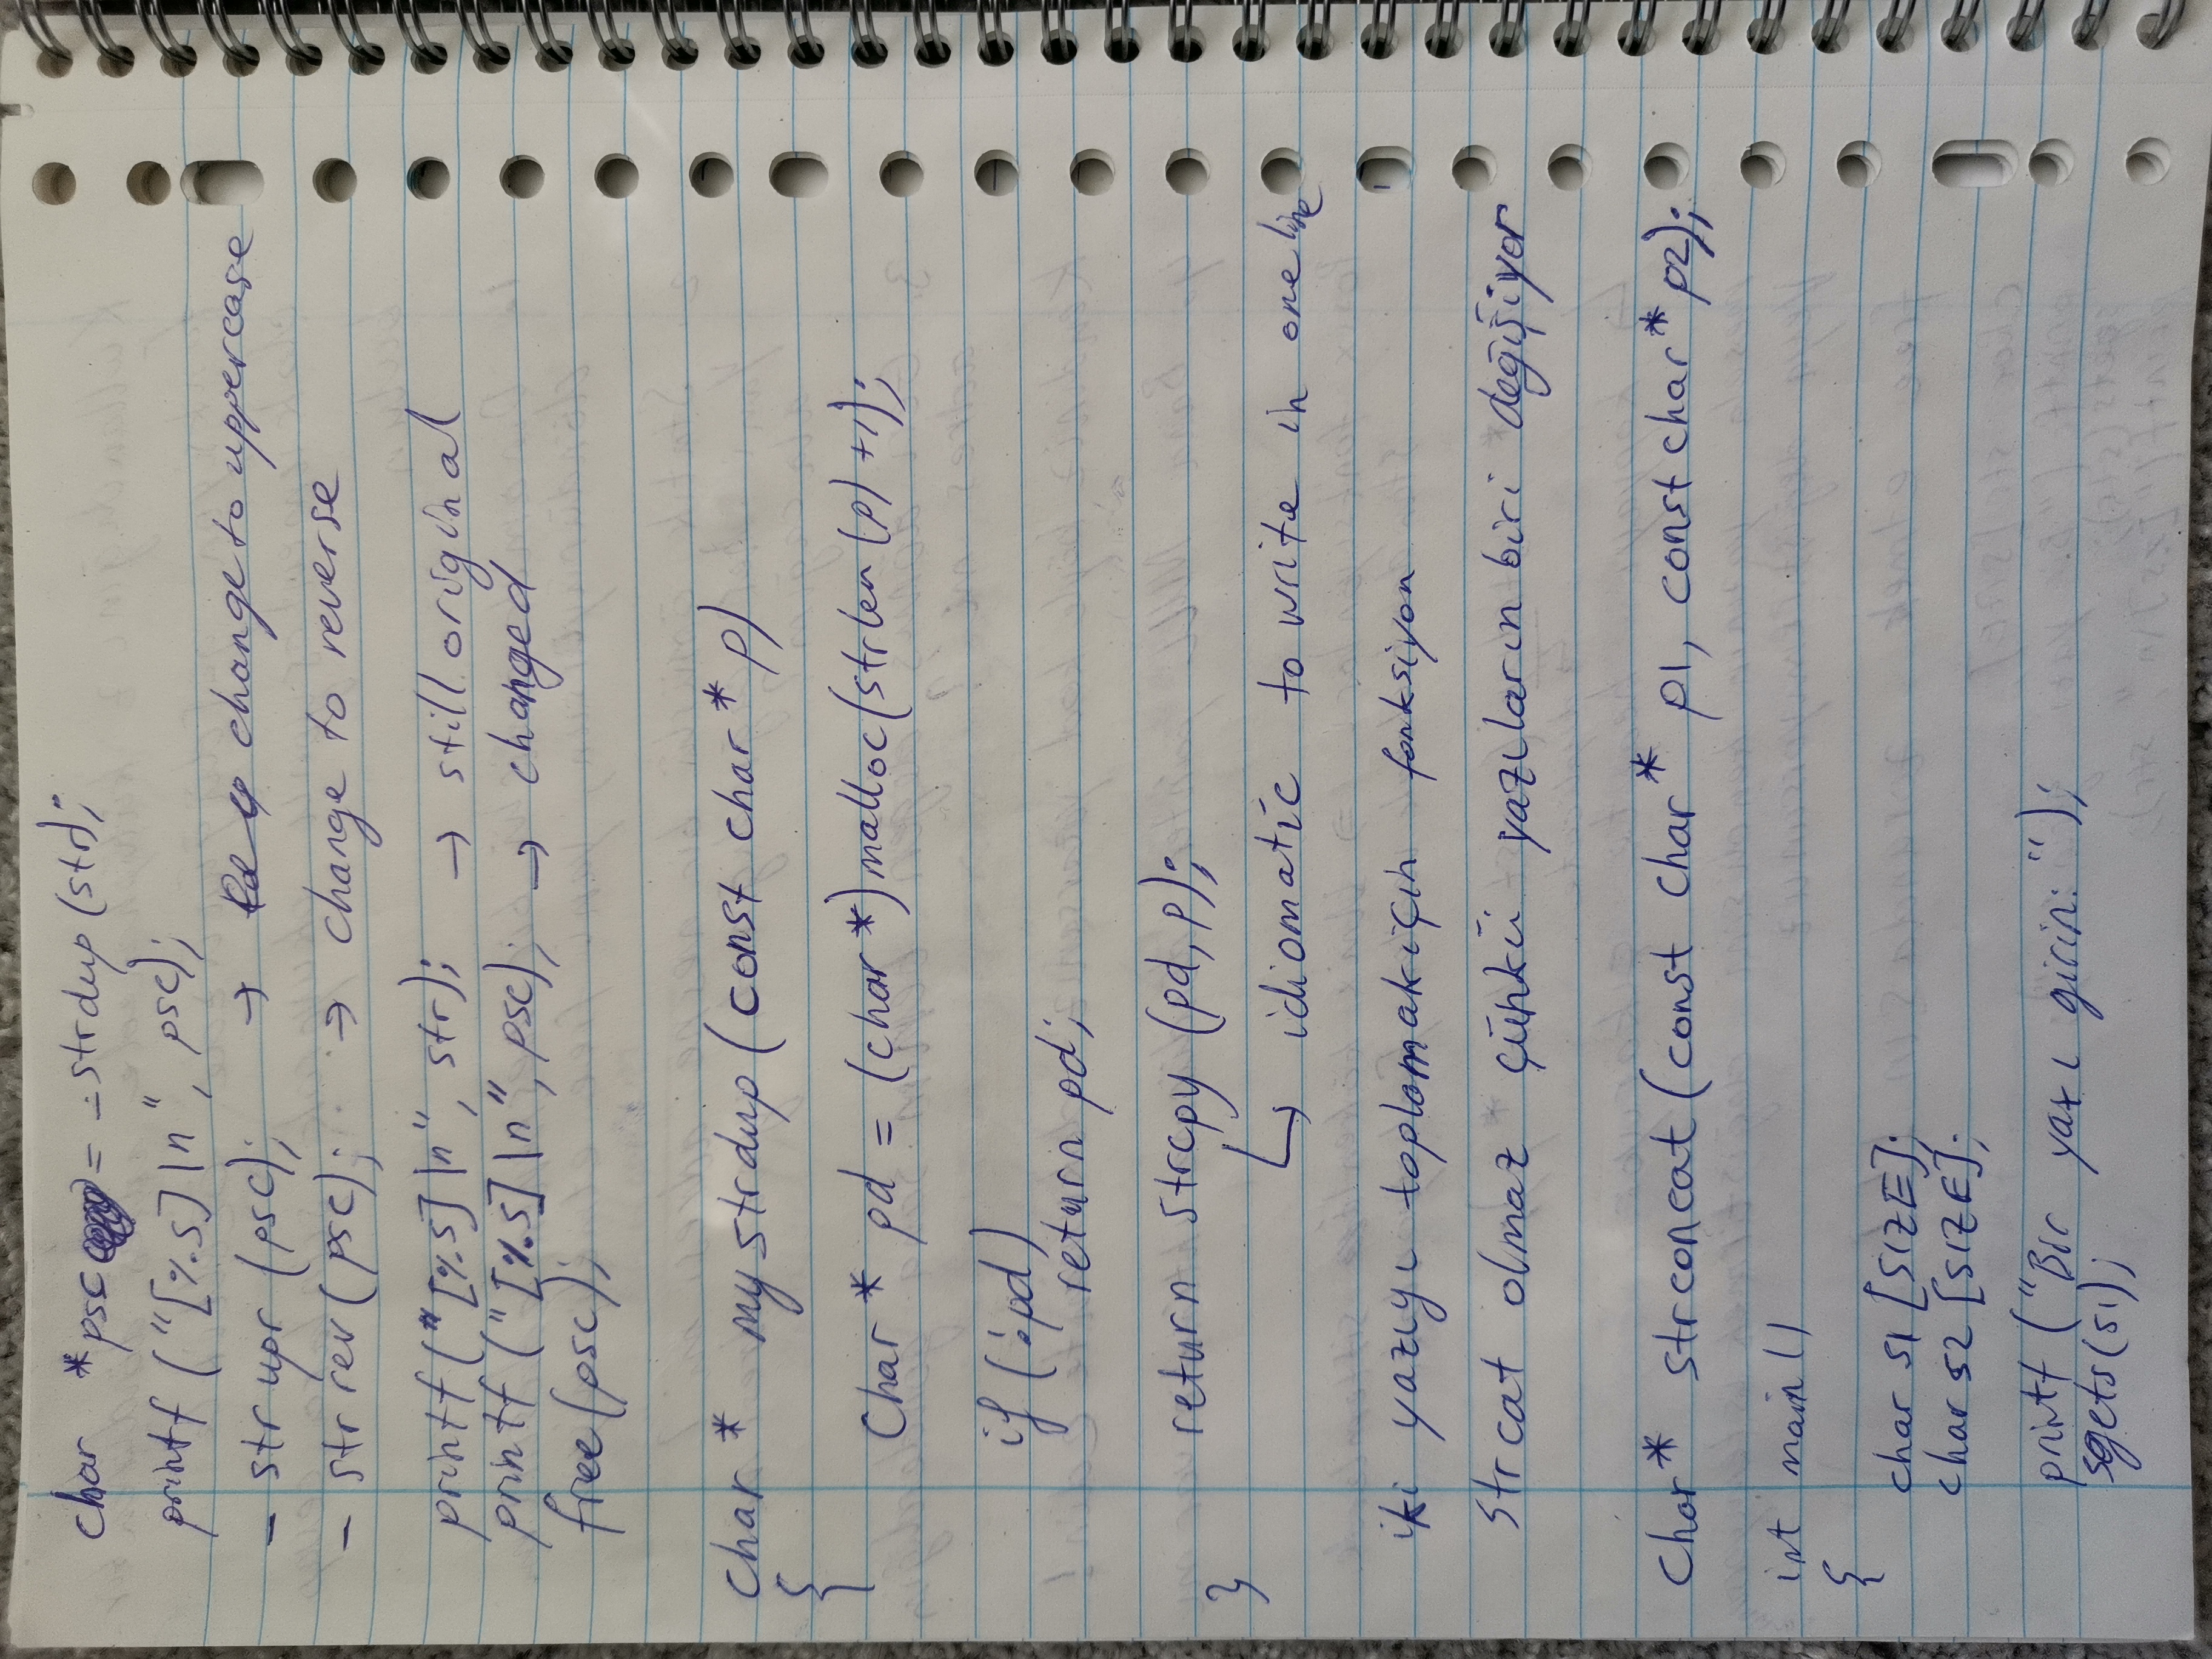 char *psc = _strdup(str);
printf("[%s]\n", psc);
_strupr(psc); → change to uppercase
_strrev(psc); → change to reverse
printf("[%s]\n", str); → still original
printf("[%s]\n", psc); → changed
free(psc);
char * mystrdup(const char* p)
{
char* pd = (char*)malloc(strlen(p)+1);
if(!pd)
return pd;
return strcpy(pd,p);
}
↳ idiomatic to write in one line
iki yazıyı toplamak için fonksiyon
strcat olmaz çünkü yazıların biri değişiyor
char* strconcat(const char* p1, const char* p2);
int main()
{
char s1[SIZE];
char s2[SIZE];
printf("Bir yazı girin: ");
sgets(s1);